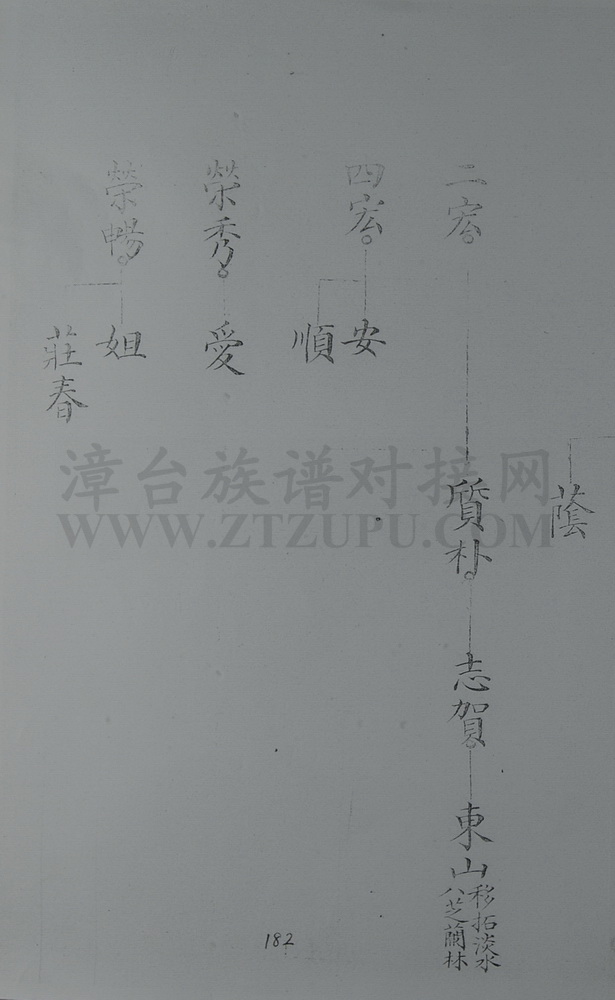 蔭
二宏
質朴
志賀
東山
移拓淡水
八芝蘭林
四宏
安
順
榮秀
愛
榮暢
妲
莊春
漳台族谱对接网
WWW.ZTZUPU.COM
182